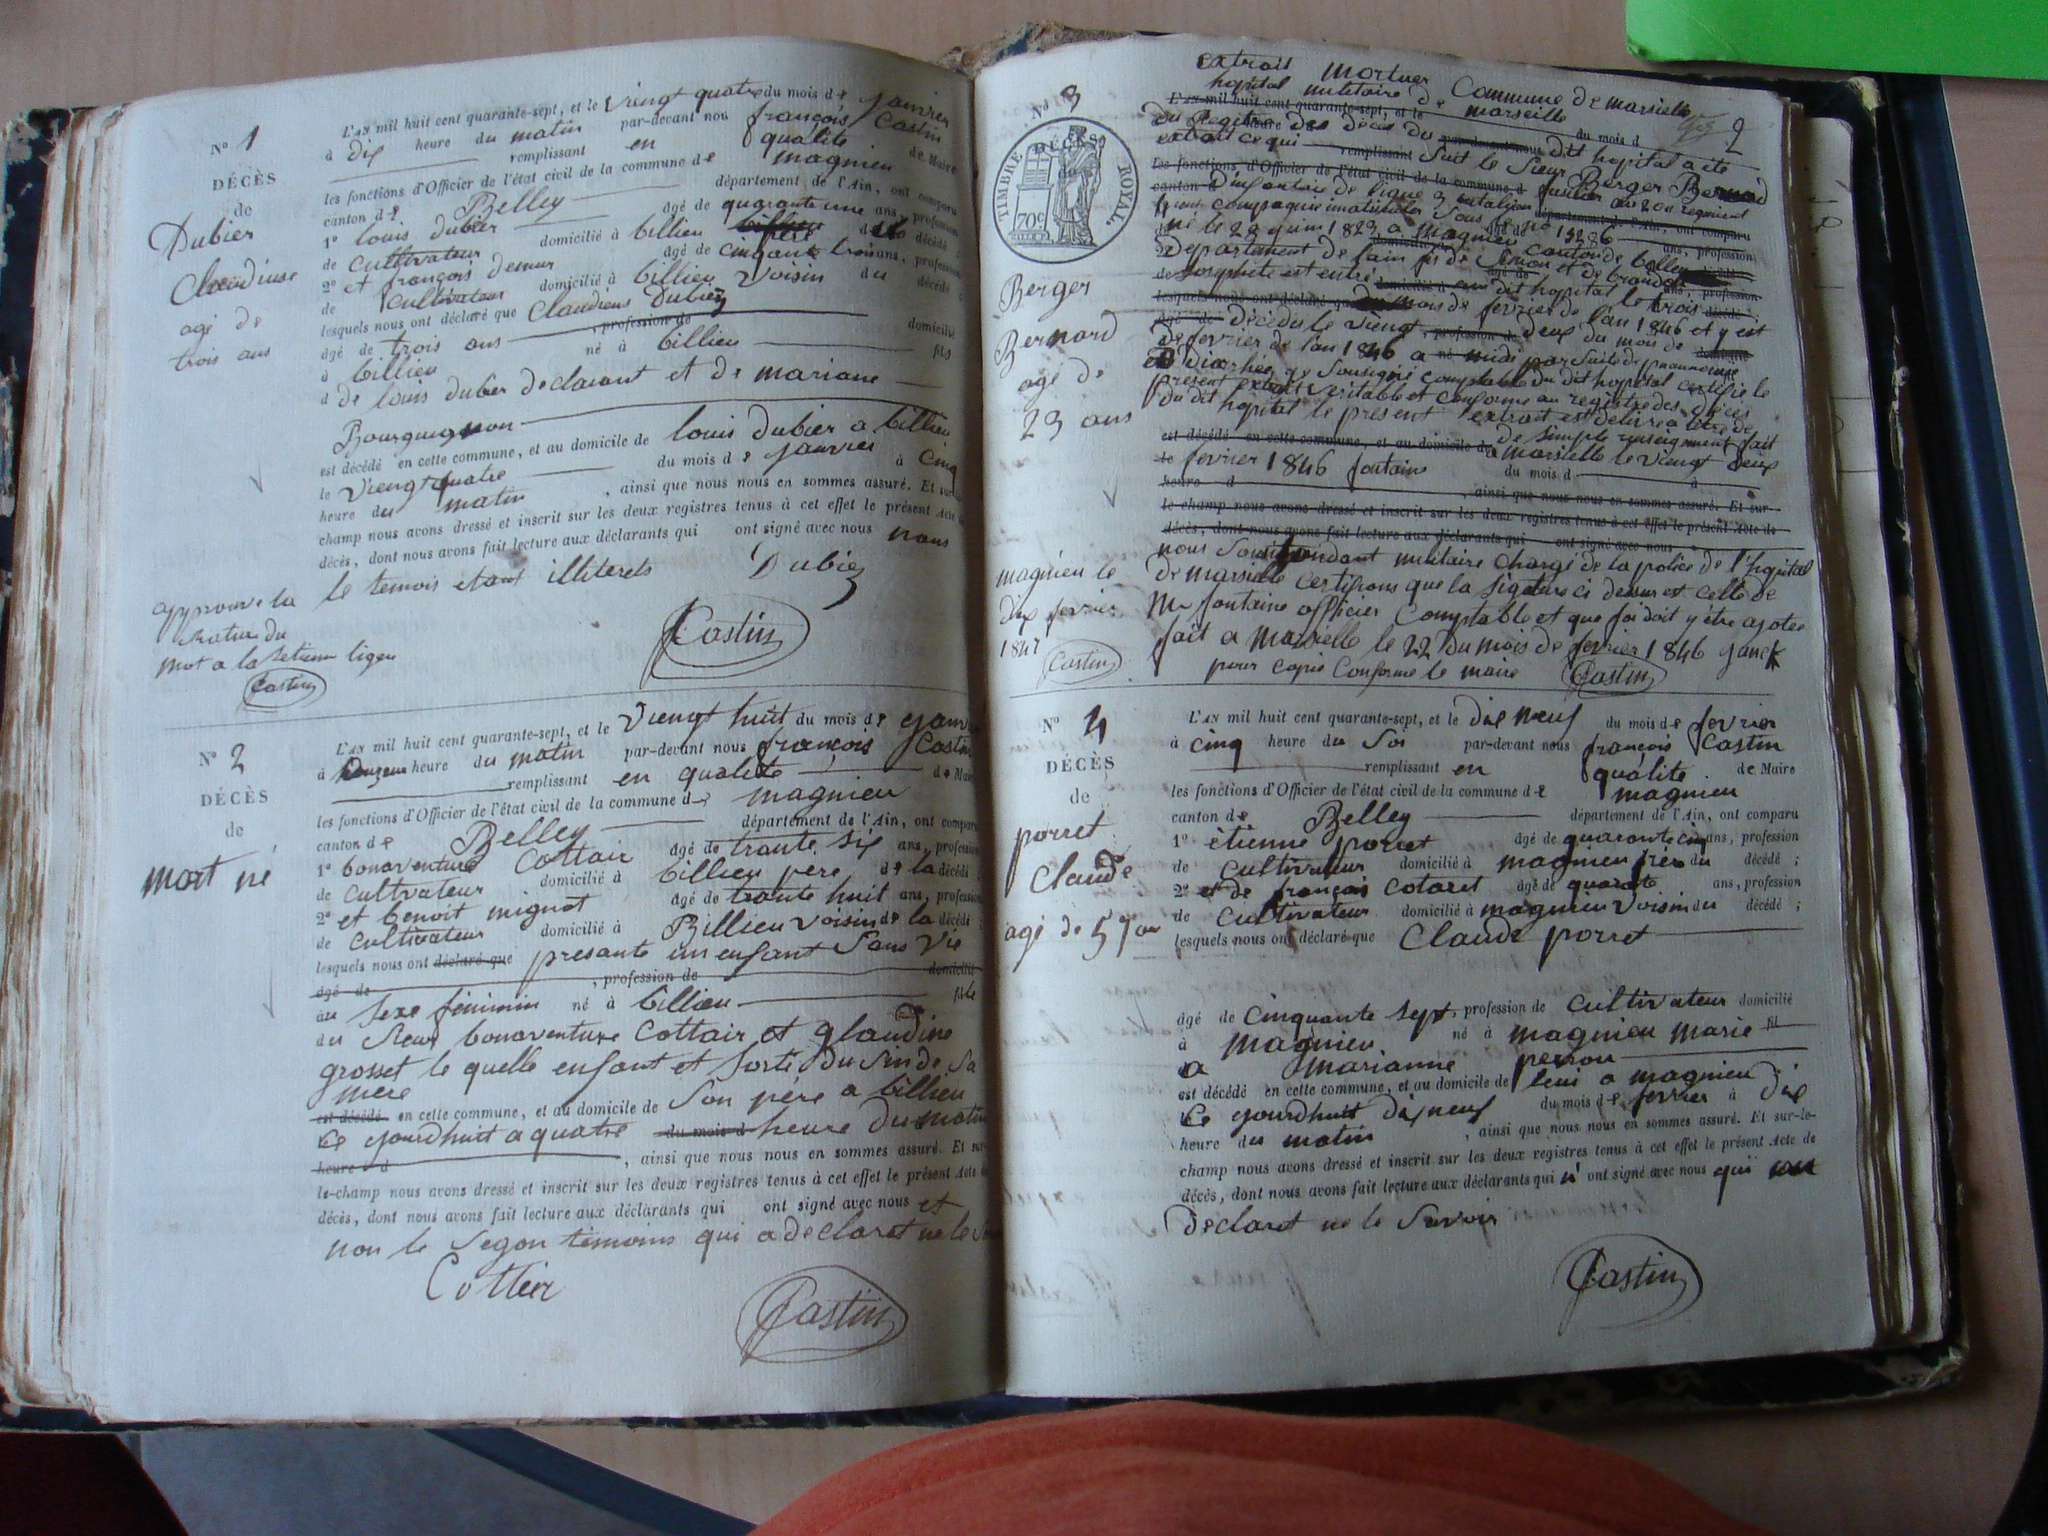 N° 1
DÉCÈS
de
Dubier
Claudiuse
agé de
trois ans
L'AN mil huit cent quarante-sept, et le viengt quatre du mois de janvier
à dix heure du matin par-devant nous françois Castin
remplissant en qualité de Maire
les fonctions d'Officier de l'état civil de la commune de magnieu
canton de Belley département de l'Ain, ont comparu
1° louis dubier agé de quarante une ans, profession
de cultivateur domicilié à billieu père du décédé
2° et françois demur agé de cinquante trois ans, profession
de cultivateur domicilié à billieu voisin du décédé ;
lesquels nous ont déclaré que Claudiens Dubier
âgé de trois ans , profession de domicilié
à billieu né à billieu fils
d de louis dubier declarant et de mariane
Bourguignon
est décédé en cette commune, et au domicile de louis dubier a billieu
le viengt quatre du mois de janvier à cinq
heure du matin , ainsi que nous nous en sommes assuré. Et sur-le-
champ nous avons dressé et inscrit sur les deux registres tenus à cet effet le présent Acte de
décès, dont nous avons fait lecture aux déclarants qui ont signé avec nous nous
le temois etant illiterets Dubier
approuve la
rature du
mot a la setieme ligne
Castin
Castin
N° 2
DÉCÈS
de
mort né
L'AN mil huit cent quarante-sept, et le viengt huit du mois de janvier
à heure du matin par-devant nous françois Castin
remplissant en qualité de Maire
les fonctions d'Officier de l'état civil de la commune de magnieu
canton de Belley département de l'Ain, ont comparu
1° bonaventure Cottair agé de trante six ans, profession
de cultivateur domicilié à billieu père de la décédé
2° et benoit mignot agé de trante huit ans, profession
de cultivateur domicilié à Billieu voisin de la décédé ;
lesquels nous ont déclaré que presante un enfant Sans vie
âgé de , profession de domicilié
au Sexe féminin né à billieu fille
du Sieur bonaventure Cottair et glaudine
grosset le quelle enfant et Sorti du Sin de Sa
mere
est décédé en cette commune, et au domicile de Son père a billieu
ce jourdhuit a quatre du mois d heure du matin
heure d , ainsi que nous nous en sommes assuré. Et sur-
le-champ nous avons dressé et inscrit sur les deux registres tenus à cet effet le présent Acte de
décès, dont nous avons fait lecture aux déclarants qui ont signé avec nous et
non le Segon temoins qui a declaret ne le
Cottier Castin
N° 3
TIMBRE ROYAL
70 c
DÉCÈS
Berger
Bernard
agé de
23 ans
magnieu le
dix fevrier
1847
Castin
2
extrait mortuer Commune de marsielle
hopital militaire de marseille
L'AN mil huit cent quarante-sept, et le du mois d
du Registre des décès du dit hopital a ete
extrait ce qui remplissant Suit le Sieur Berger Bernard
les fonctions d'Officier de l'état civil de la commune d fusilier au 20 e regiment
canton d d'infanterie de ligne 3 bataljon
compagnie imatriculer Sous le no 15286
né le 20 juin 1823 a magnieu canton de belley
departement de lain fis de Simon et de
Josephete est entré au dit hopital le trois
du mois de fevrier de l'an 1846 et y est
décédé le viengt deux du mois de
de fevrier de l'an 1846 a midi par Suite de pneumonie
et diarhée Sousigné comptable du dit hopital certifie le
présent extrait veritable et conforme au registre des décès
du dit hopital le present extrait est delivré a titre de
de simple renseignement fait
est décédé en cette commune, et au domicile de a marsielle le viengt deux
le fevrier 1846 fontaine du mois d
heure d , ainsi que nous nous en sommes assuré. Et sur-
le champ nous avons dressé et inscrit sur les deux registres tenus à cet effet le présent Acte de
décès, dont nous avons fait lecture aux déclarants qui ont signé avec nous
nous militaire chargé de la police de l'hopital
de marsielle certifions que la Sigature ci dessus est celle de
Mr fontaine officier Comptable et que foi doit y être ajotée
fait a Marsielle le 22 du mois de fevrier 1846
pour copie Conforme le maire Castin
N° 4
DÉCÈS
de
porret
Claude
agé de 57 an
L'AN mil huit cent quarante-sept, et le dix neuf du mois de fevrier
à cinq heure du Soi par-devant nous françois Castin
remplissant en qualité de Maire
les fonctions d'Officier de l'état civil de la commune de magnieu
canton de Belley département de l'Ain, ont comparu
1° étienne porret agé de quarante cinq ans, profession
de cultivateur domicilié à magnieu frer du décédé ;
2° et de françois cotaret agé de quarate ans, profession
de cultivateur domicilié à magnieu voisin du décédé ;
lesquels nous ont déclaré que Claude porret
âgé de cinquante sept, profession de cultivateur domicilié
à magnieu né à magnieu marie fil
a marianne perrou
est décédé en cette commune, et au domicile de leui a magnieu
ce jourdhuit dix neuf du mois de fevrier à dix
heure du matin , ainsi que nous nous en sommes assuré. Et sur-le-
champ nous avons dressé et inscrit sur les deux registres tenus à cet effet le présent Acte de
décès, dont nous avons fait lecture aux déclarants qui n' ont signé avec nous qui
declaret ne le Savoir
Castin